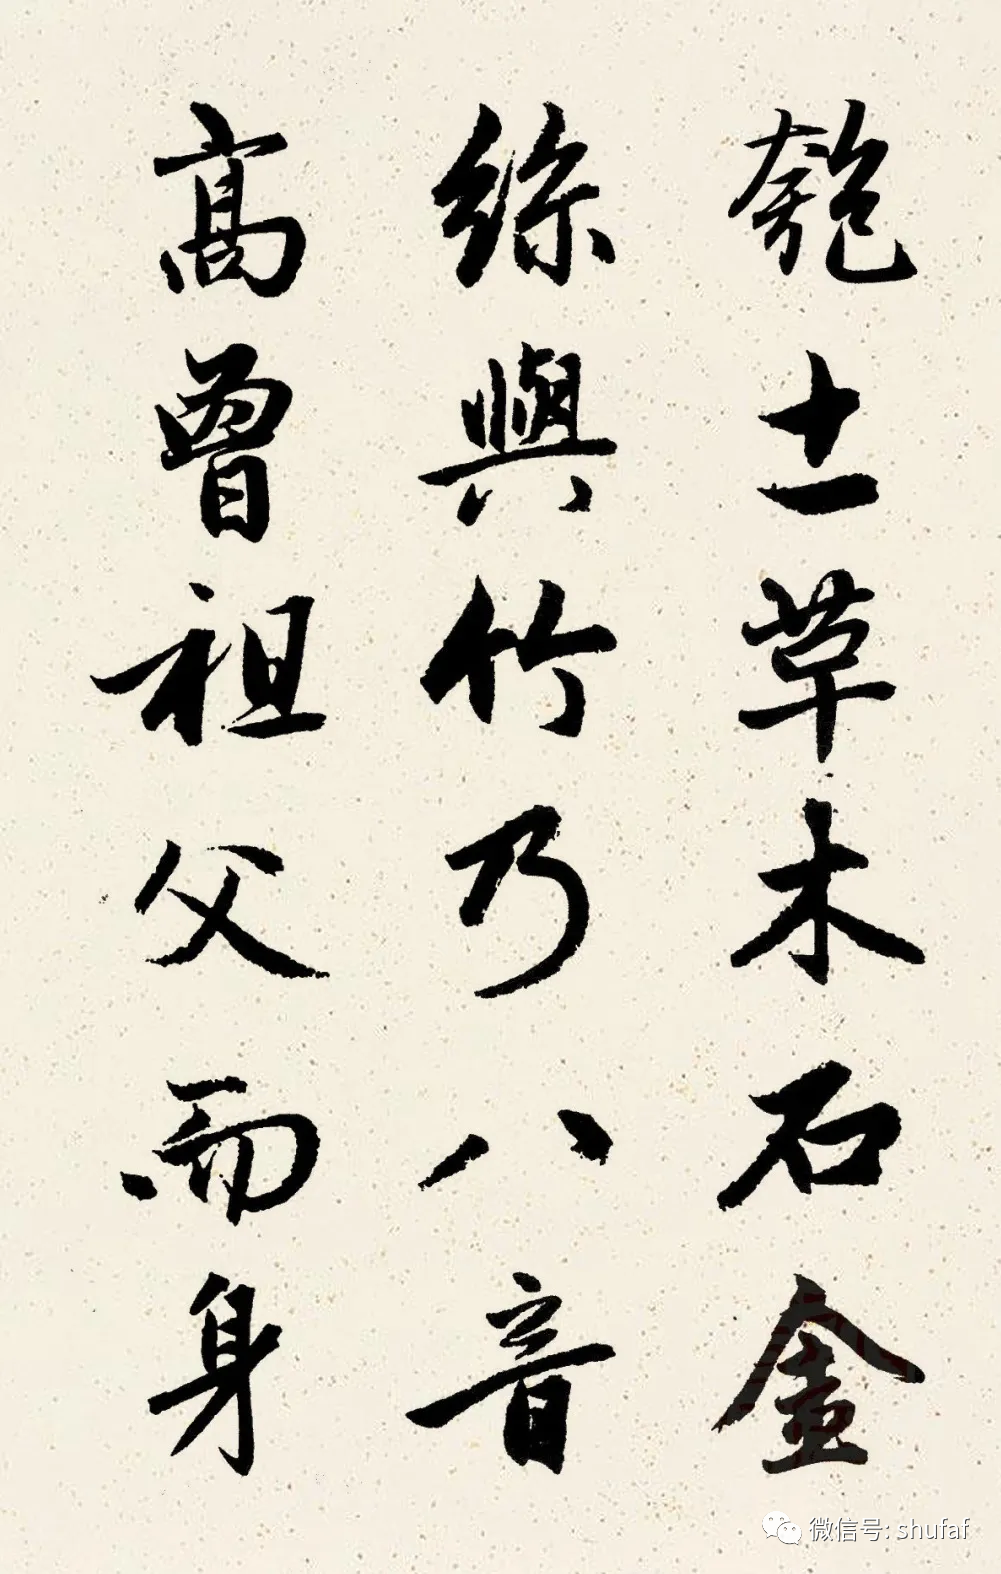 匏土草木石金
絲與竹乃八音
高曾祖父而身
微信号: shufaf